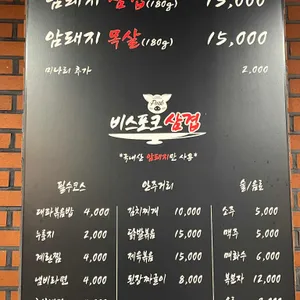 암돼지 삼겹(180g) 15,000
암돼지 목살(180g) 15,000
미나리 추가 2,000
비스포크 삼겹
*국내산 암돼지만 사용*
필수코스 안주거리 술/음료
대파볶음밥 4,000 김치찌개 10,000 소주 5,000
누룽지 2,000 닭발볶음 15,000 맥주 5,000
계란찜 4,000 제육볶음 15,000 매화수 6,000
냄비라면 4,000 된장짜글이 8,000 복분자 12,000